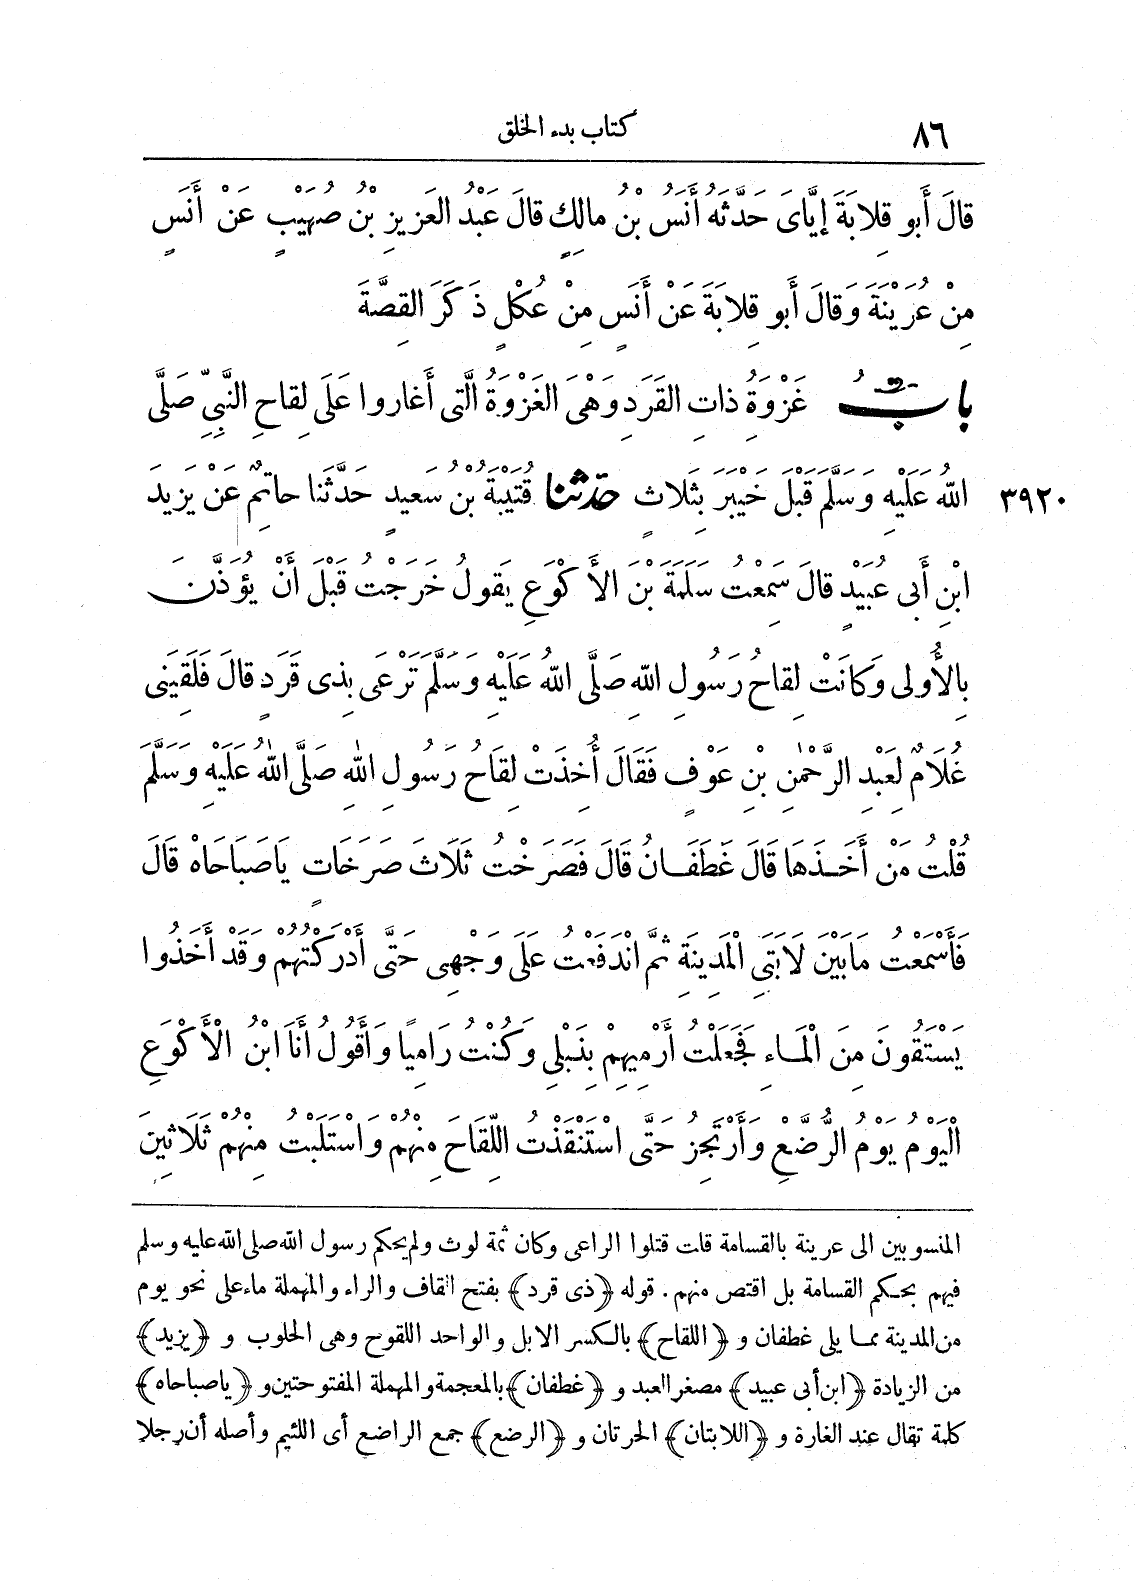 ٨٦
كتاب بدء الخلق
قالَ أَبو قِلابَةَ إيَّاىَ حَدَّثَهُ أَنَسُ بْنُ مالِكٍ قالَ عَبْدُ العَزيزِ بْنُ صُهَيْبٍ عَنْ أَنَسٍ
مِنْ عُرَيْنَةَ وَقالَ أَبو قِلابَةَ عَنْ أَنَسٍ مِنْ عُكْلٍ ذَكَرَ القِصَّةَ
بابُ غَزْوَةُ ذاتِ القَرَدِ وَهْىَ الغَزْوَةُ الَّتى أَغاروا عَلَى لِقاحِ النَّبِىِّ صَلَّى
٣٩٢٠ اللهُ عَلَيْهِ وَسَلَّمَ قَبْلَ خَيْبَرَ بِثَلاثٍ حدّثنا قُتَيْبَةُ بْنُ سَعيدٍ حَدَّثَنا حاتِمٌ عَنْ يَزيدَ
ابْنِ أَبى عُبَيْدٍ قالَ سَمِعْتُ سَلَمَةَ بْنَ الأَكْوَعِ يَقولُ خَرَجْتُ قَبْلَ أَنْ يُؤَذَّنَ
بِالأُولى وَكانَتْ لِقاحُ رَسُولِ اللهِ صَلَّى اللهُ عَلَيْهِ وَسَلَّمَ تَرْعَى بِذى قَرَدٍ قالَ فَلَقِيَنى
غُلَامٌ لِعَبْدِ الرَّحْمٰنِ بْنِ عَوْفٍ فَقَالَ أُخِذَتْ لِقَاحُ رَسُولِ اللهِ صَلَّى اللهُ عَلَيْهِ وَسَلَّمَ
قُلْتُ مَنْ أَخَذَهَا قَالَ غَطَفَانُ قَالَ فَصَرَخْتُ ثَلَاثَ صَرَخَاتٍ يَاصَبَاحَاهْ قَالَ
فَأَسْمَعْتُ مَابَيْنَ لَابَتَىِ الْمَدِينَةِ ثُمَّ انْدَفَعْتُ عَلَى وَجْهِى حَتَّى أَدْرَكْتُهُمْ وَقَدْ أَخَذُوا
يَسْتَقُونَ مِنَ الْمَاءِ فَجَعَلْتُ أَرْمِيهِمْ بِنَبْلِى وَكُنْتُ رَامِيًا وَأَقُولُ أَنَا ابْنُ الْأَكْوَعِ
الْيَوْمُ يَوْمُ الرُّضَّعِ وَأَرْتَجِزُ حَتَّى اسْتَنْقَذْتُ اللِّقَاحَ مِنْهُمْ وَاسْتَلَبْتُ مِنْهُمْ ثَلَاثِينَ
المنسوبين الى عرينة بالقسامة قلت قتلوا الراعى وكان ثمة لوث ولم يحكم رسول الله صلى الله عليه وسلم
فيهم بحكم القسامة بل اقتص منهم. قوله ﴿ذى قرد﴾ بفتح القاف والراء والمهملة ماء على نحو يوم
من المدينة مما يلى غطفان و ﴿اللقاح﴾ بالكسر الابل والواحد اللقوح وهى الحلوب و ﴿يزيد﴾
من الزيادة ﴿ابن أبى عبيد﴾ مصغر العبد و ﴿غطفان﴾ بالمعجمة والمهملة المفتوحتين و ﴿ياصباحاه﴾
كلمة تقال عند الغارة و ﴿اللابتان﴾ الحرتان و ﴿الرضع﴾ جمع الراضع أى اللئيم وأصله أن رجلا